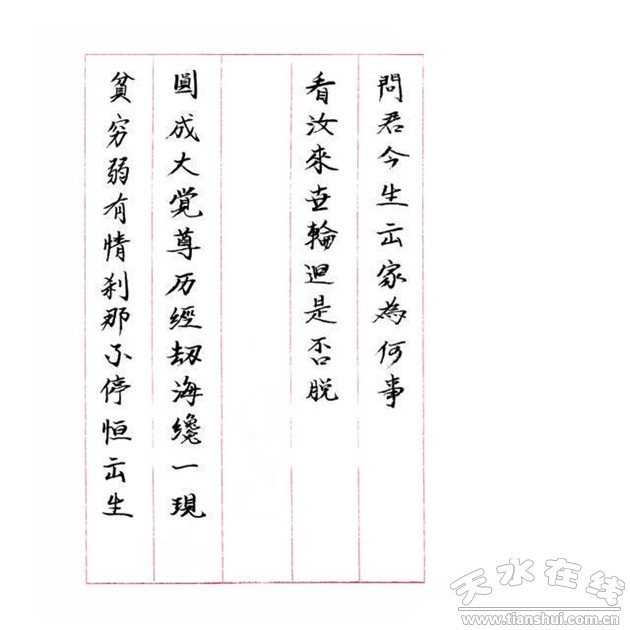 問君今生出家為何事
看汝來世輪迴是否脫
圓成大覚尊历經劫海纔一現
貧穷弱有情刹那不停恒出生
天水在线
www.tianshui.com.cn